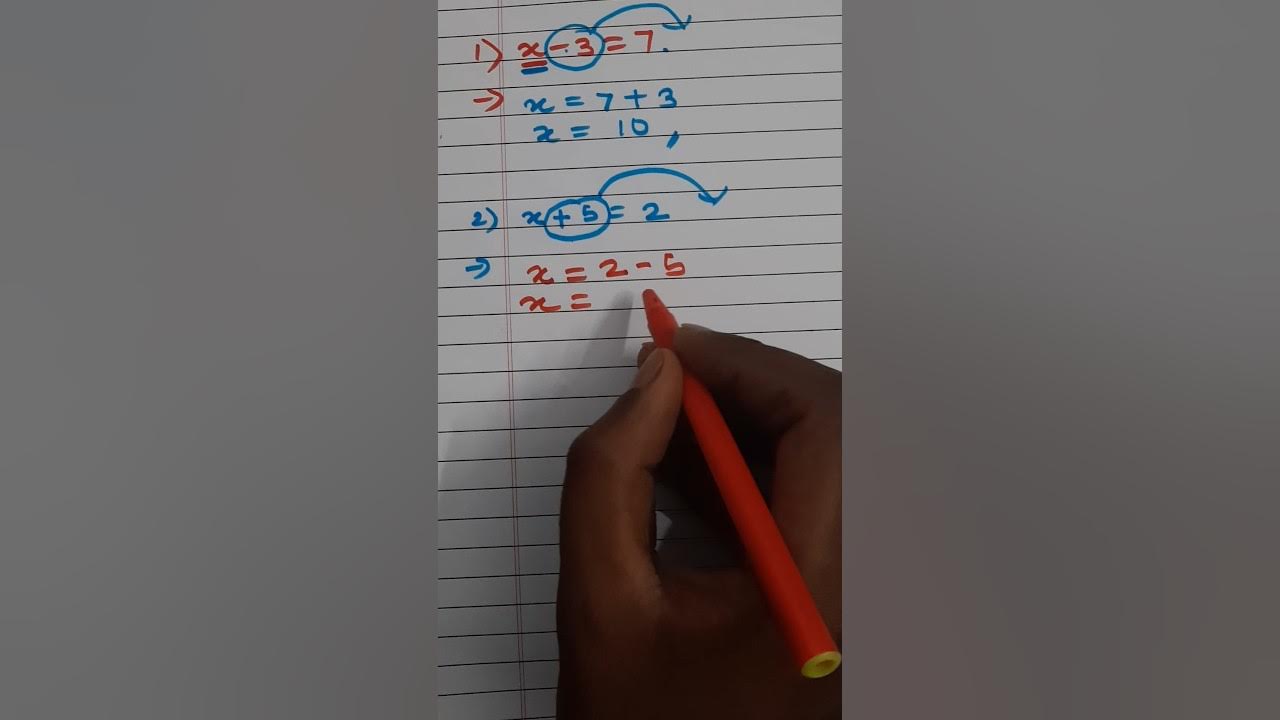 1) x - 3 = 7.
→ x = 7 + 3
x = 10,
2) x + 5 = 2
→ x = 2 - 5
x =